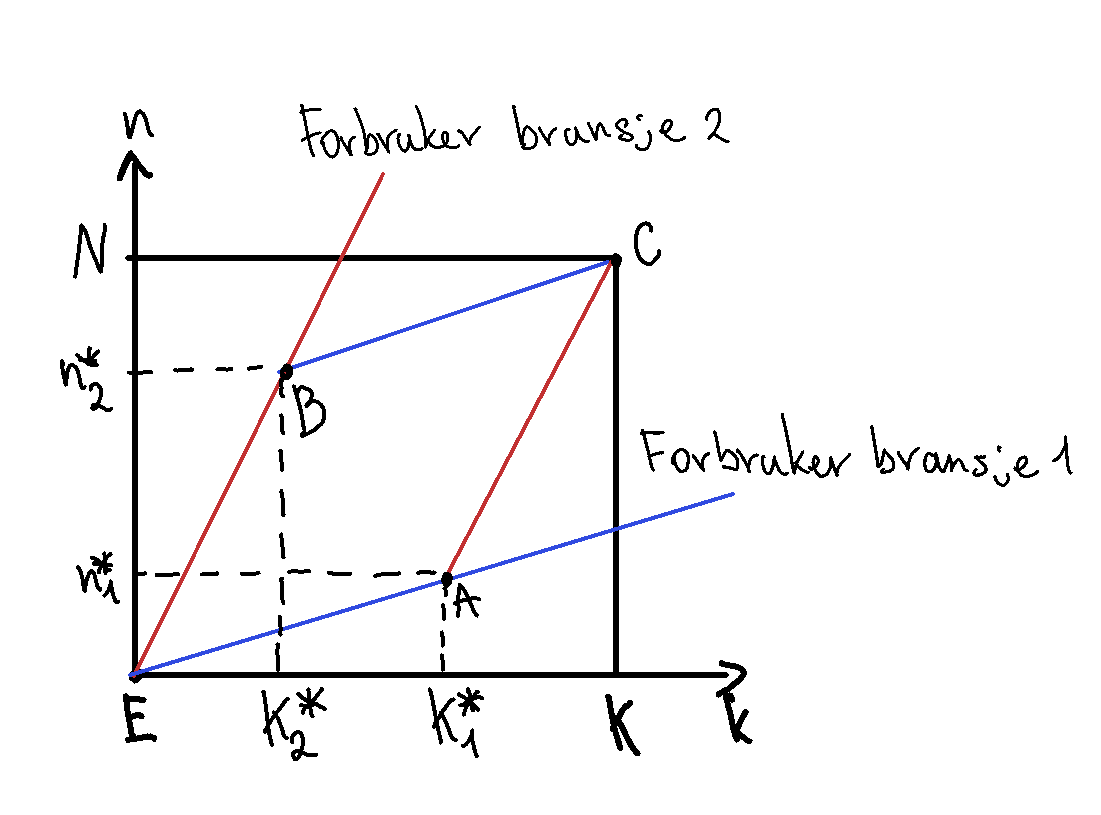 n
Forbruker bransje 2
N
C
n₂*
B
Forbruker bransje 1
n₁*
A
E
K₂*
K₁*
K
k